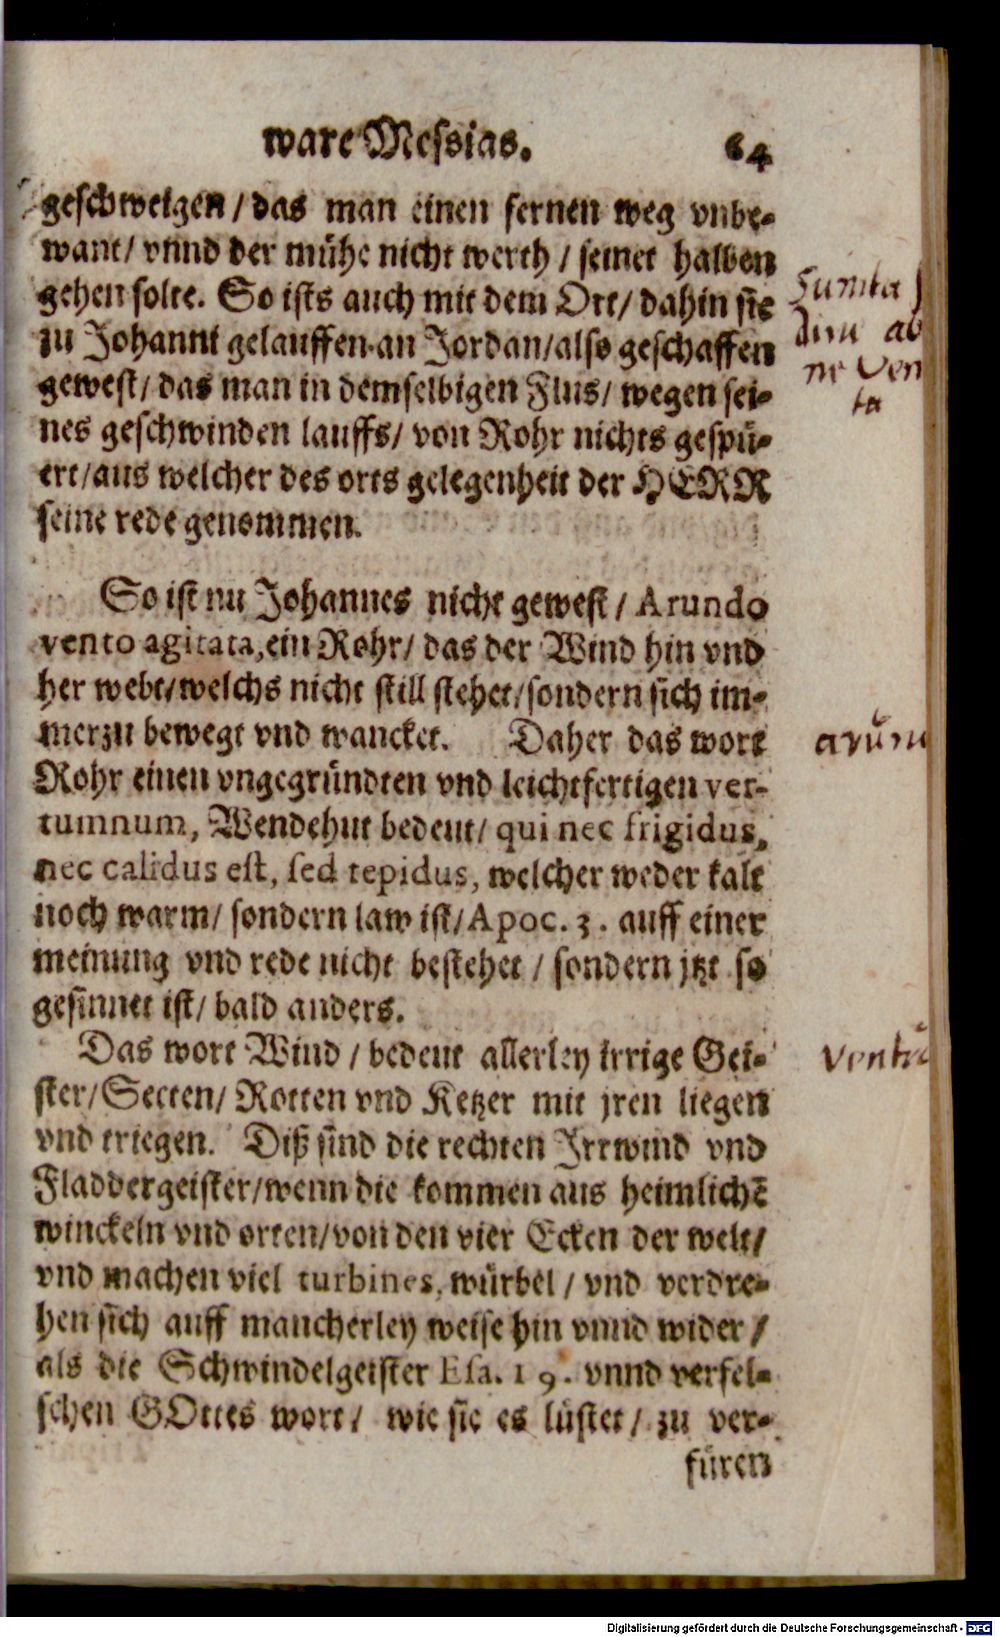 ware Messias. 64
geschweigen / das man einen fernen weg vnbe-
want / vnnd der mühe nicht werth / seinet halben
gehen solte. So ists auch mit dem Ort / dahin sie
zu Johanni gelauffen an Jordan / also geschaffen
gewest / das man in demselbigen Flus / wegen sei-
nes geschwinden lauffs / von Rohr nichts gespü-
ret / aus welcher des orts gelegenheit der HERR
seine rede genommen.
So ist nu Johannes nicht gewest / Arundo
vento agitata, ein Rohr / das der Wind hin vnd
her webt / welchs nicht still stehet / sondern sich im-
merzu bewegt vnd wancket. Daher das wort
Rohr einen vngegründten vnd leichtfertigen ver-
tumnum, Wendehut bedeut / qui nec frigidus,
nec calidus est, sed tepidus, welcher weder kalt
noch warm / sondern law ist / Apoc. 3. auff einer
meinung vnd rede nicht bestehet / sondern jtzt so
gesinnet ist / bald anders.
Das wort Wind / bedeut allerley irrige Gei-
ster / Secten / Rotten vnd Ketzer mit jren liegen
vnd triegen. Diß sind die rechten Irrwind vnd
Fladdergeister / wenn die kommen aus heimlichē
winckeln vnd orten / von den vier Ecken der welt /
vnd machen viel turbines, würbel / vnd verdre-
hen sich auff mancherley weise hin vnnd wider /
als die Schwindelgeister Esa. 19. vnnd verfel-
schen GOttes wort / wie sie es lüstet / zu ver-
füren
ta
ventū
Digitalisierung gefördert durch die Deutsche Forschungsgemeinschaft - DFG